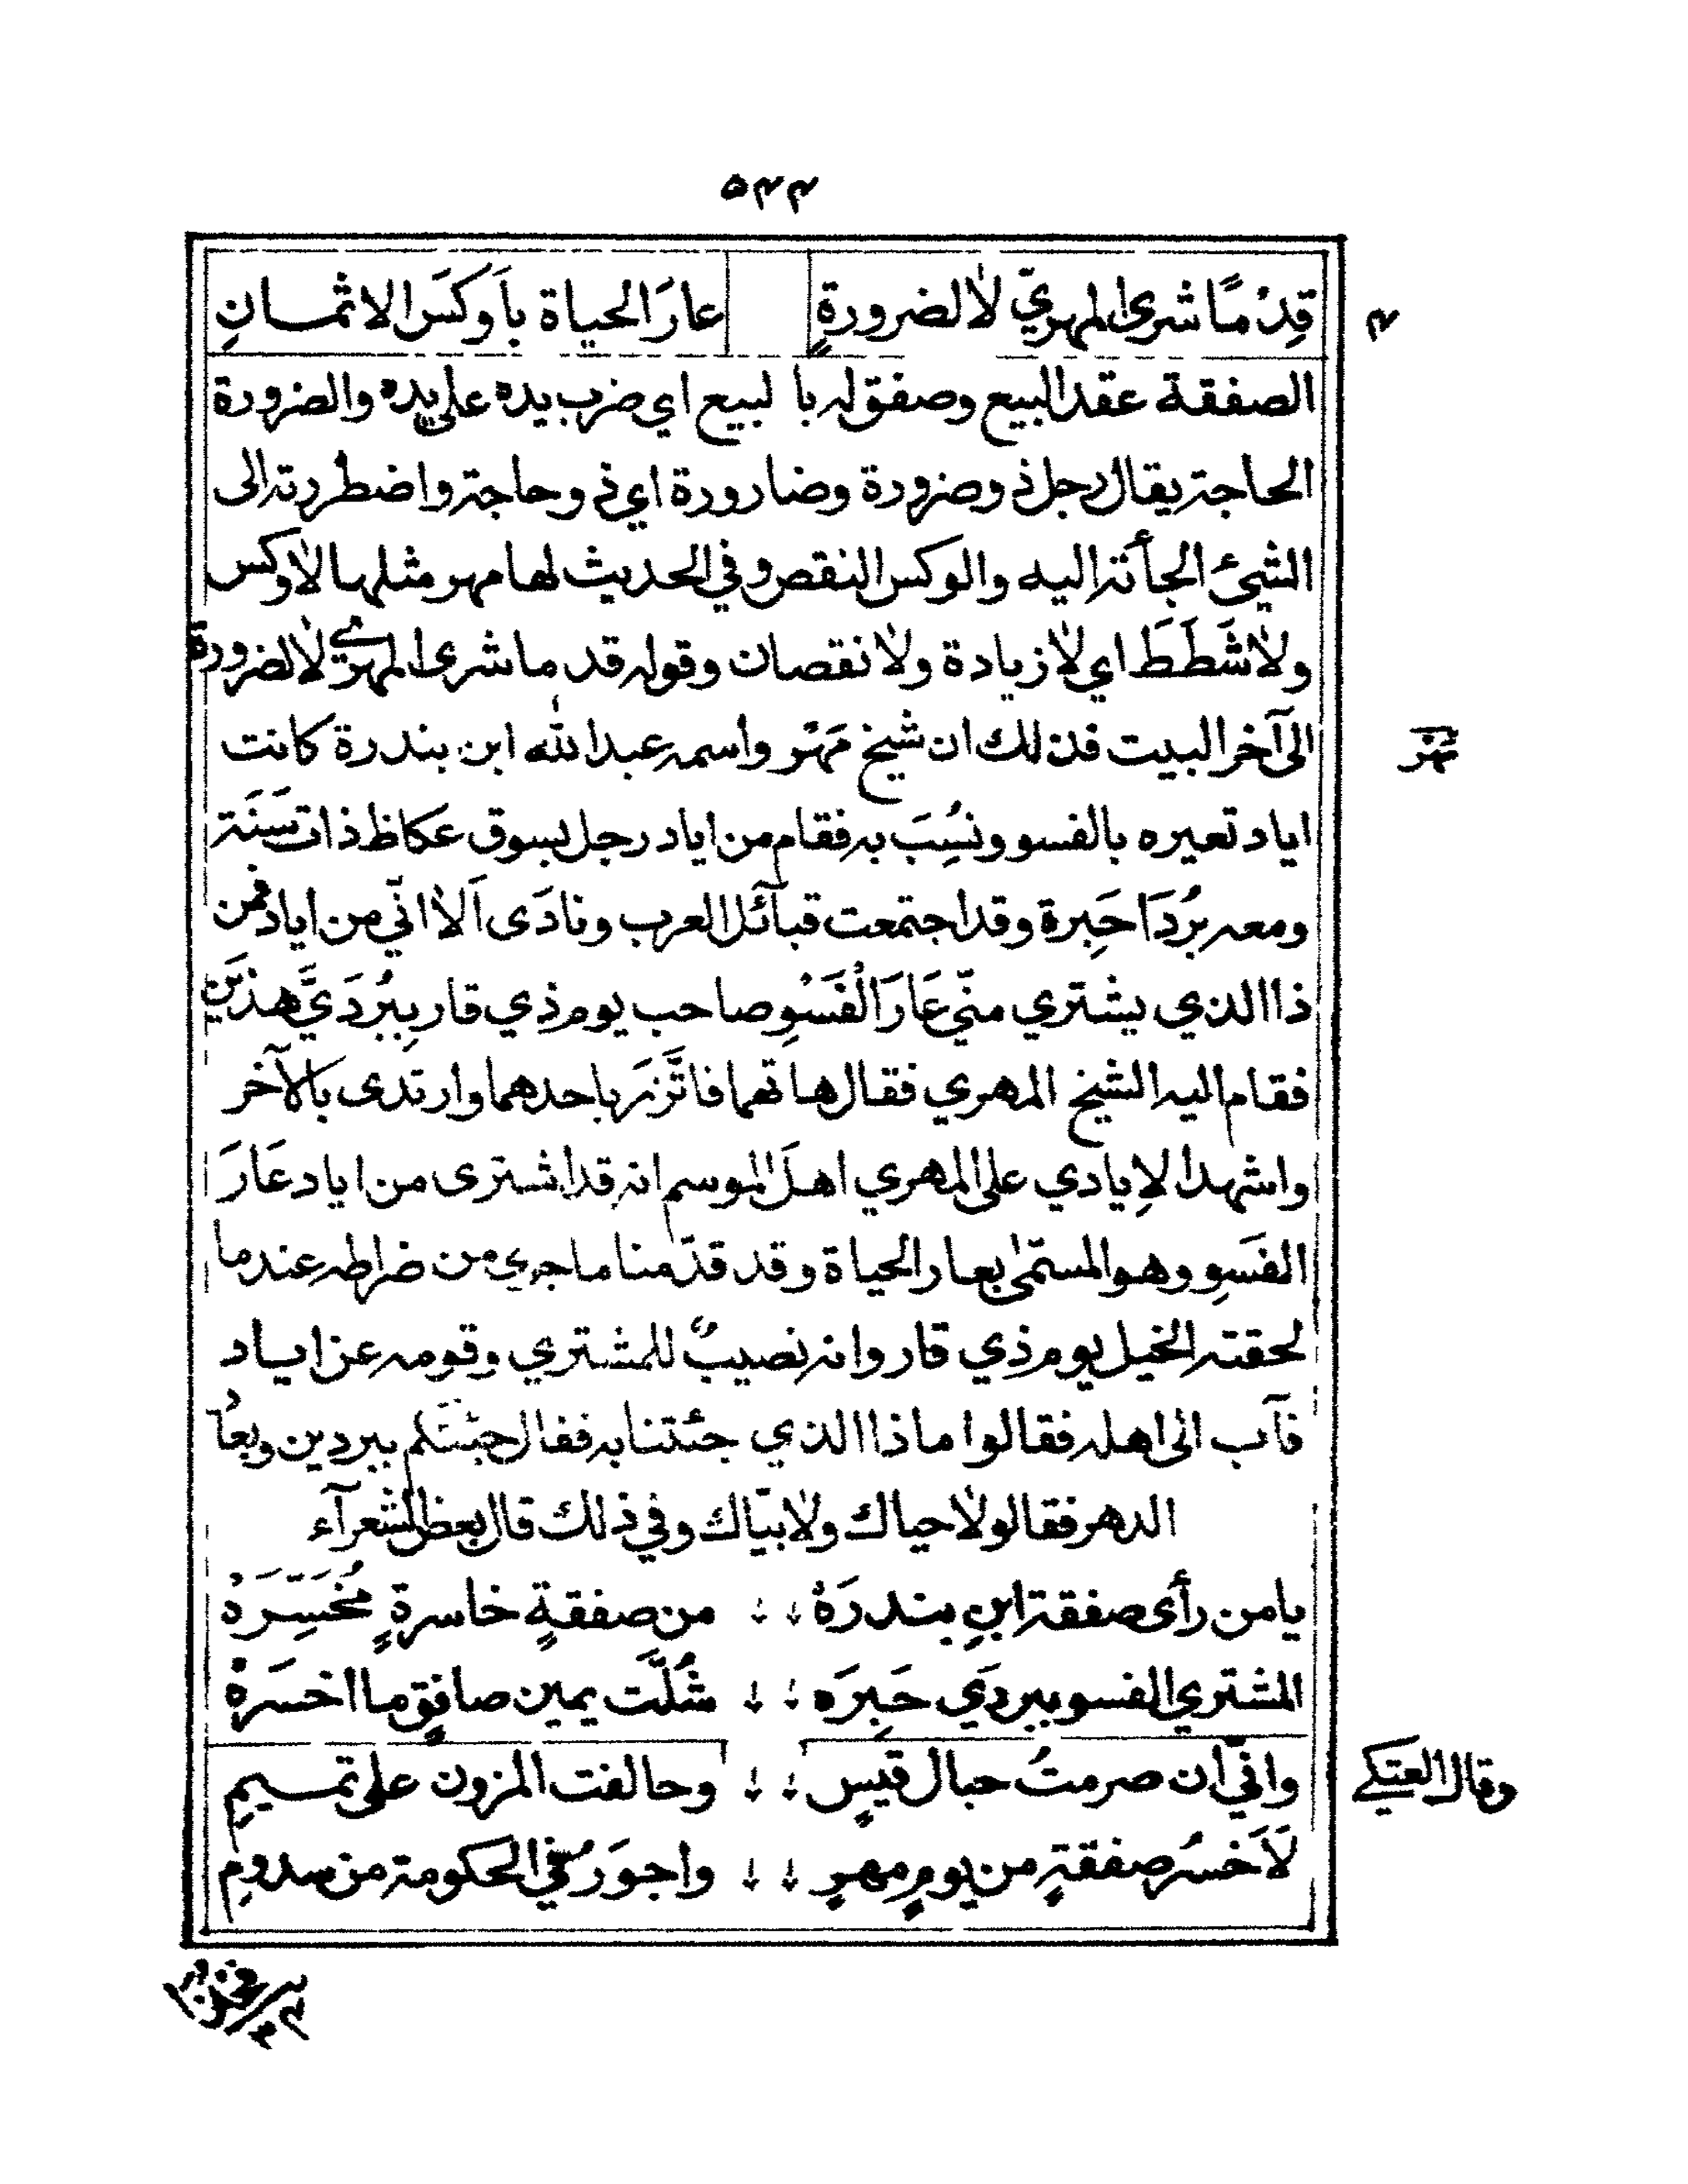 ٥٤٤
قِدْ مًا شرى المهريّ لا لضرورةٍ عارَ الحياة باَوكَس الاثمــانِ
٤
الصفقة عقد البيع وصفق له با لبيع اي ضرب يده على يده والضرورة
الحاجة يقال رجل ذ وضرورة وضارورة اي ذ وحاجة واضطررته الى
الشيئ الجأته اليه والوكس النقص وفي الحديث لها مهر مثلها لا وكس
ولا شَطَطَ اي لا زيادة ولا نقصان وقوله قد ما شرى المهري لا لضرورة
الى آخر البيت فذ لك ان شيخ مَهْر واسمه عبد الله ابن بندرة كانت
مَهْر
اياد تعيره بالفسو ونسُِبَ به فقام من اياد رجل بسوق عكاظ ذات سَنَة
ومعه بُردَا حَبِرة وقد اجتمعت قبآئل العرب ونادَى اَلا انّي من اياد فمن
ذا الذي يشتري منّي عَارَ الْفَسْوِ صاحب يوم ذي قار بِبُردَيَّ هذَين
فقام اليه الشيخ المهري فقال هاتهما فاتَّزَرَ باحدهما وارتدى بالآخر
واشهد الاِيادي على المهري اهلَ الموسم انه قد اشترى من اياد عَارَ
الفَسوِ وهو المستمى بعار الحياة وقد قدّمنا ما جرى من ضراطه عندما
لحقته الخيل يوم ذي قار وانه نصيبٌ للمشتري وقومه عن ايــاد
فآب الى اهله فقالوا ماذا الذي جئتنا به فقال جئتكم ببردين وبعا
الدهر فقالو لا حياك ولا بيّاك وفي ذلك قال بعض الشعرآء
يا من رأى صفقة ابنِ بندرَهْ من صفقةٍ خاسرةٍ مُخَسِّرَهْ
المشتري الفسو ببردَي حَبِرَه شُلَّت يمين صافقٍ ما اخسَرهْ
وقال العتكي
وانّي ان صرمتُ حبال قيسٍ وحالفت المزون على تمــيمِ
لَاَخسرُ صفقةٍ من يومٍ مهرٍ واجوَرُ في الحكومة من سدومِ